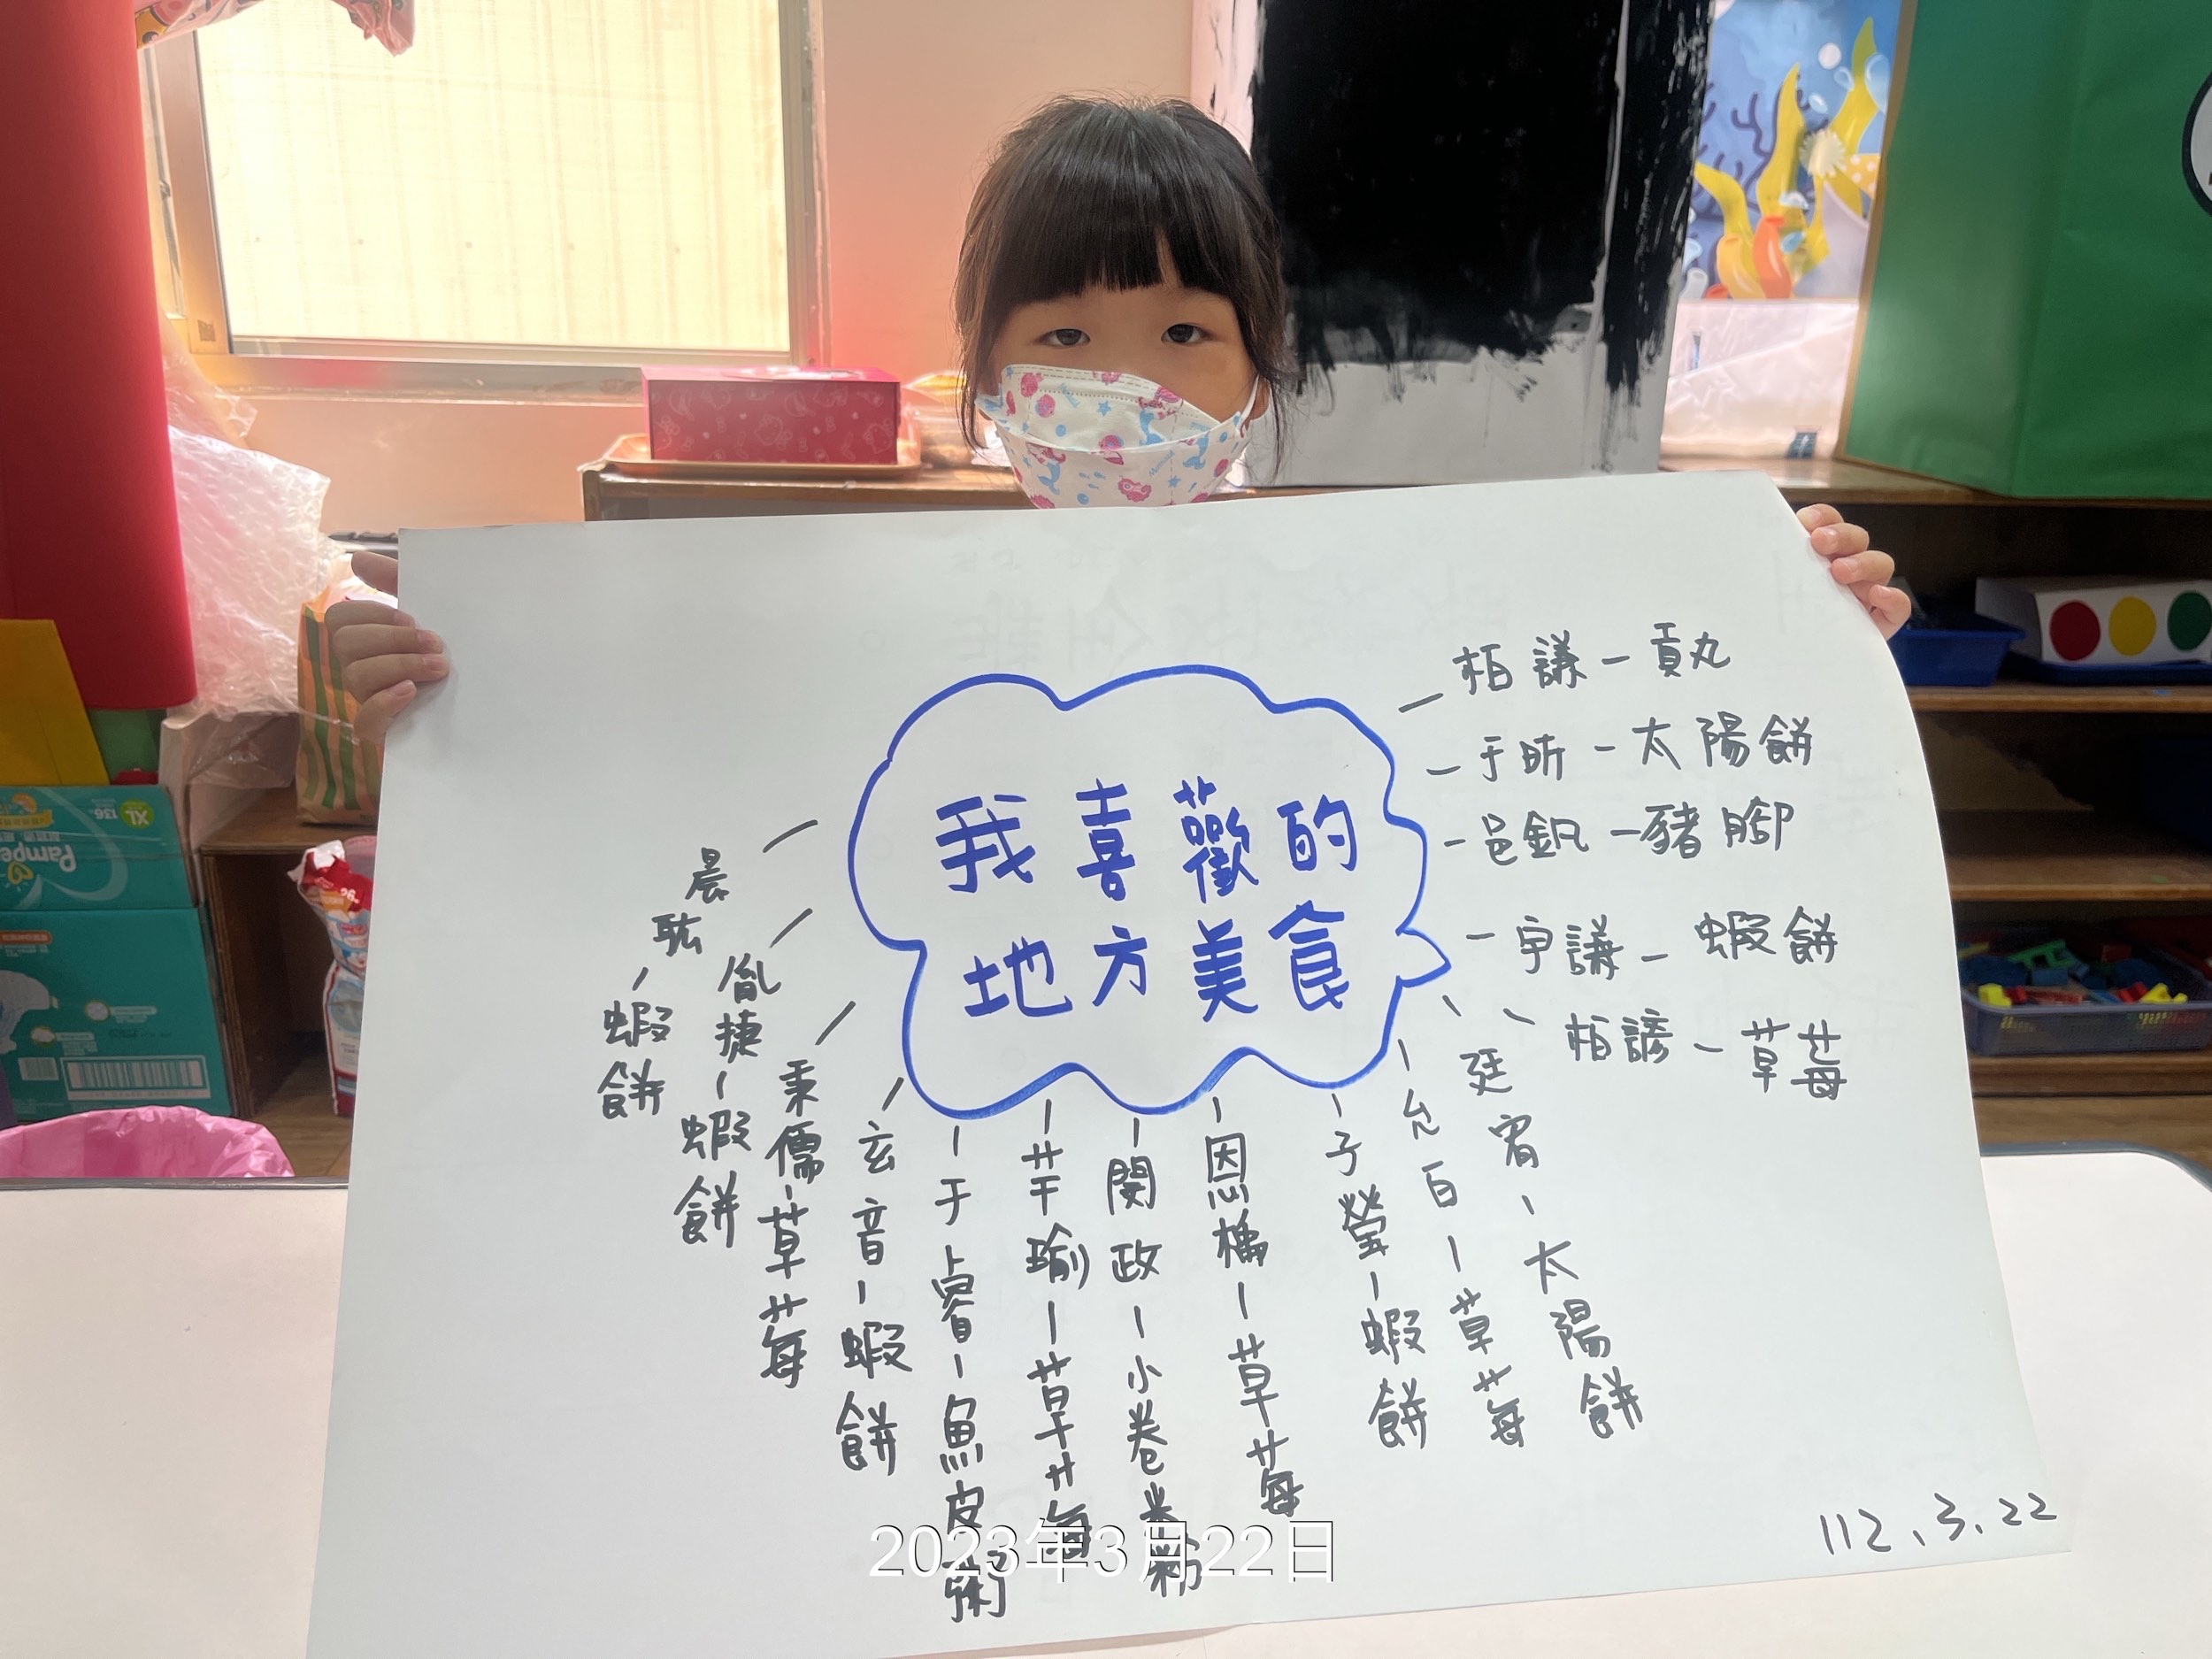 我喜歡的
地方美食
柏謙-貢丸
于昕-太陽餅
邑釩-豬腳
宇謙-蝦餅
柏諺-草莓
廷宥-太陽餅
允百-草莓
子螢-蝦餅
恩橘-草莓
閔政-小卷米粉
芊瑜-草莓
于睿-魚皮粥
玄音-蝦餅
秉儒-草莓
胤捷-蝦餅
晨耘-蝦餅
112.3.22
2023年3月22日
Pampers
XL
136